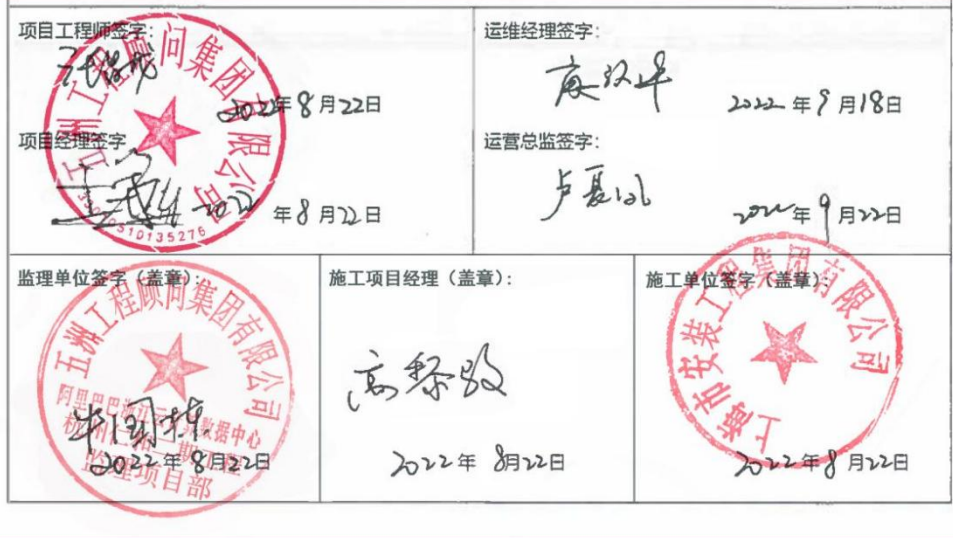 项目工程师签字：
2022年8月22日
项目经理签字
2022年8月22日
五洲工程顾问集团有限公司
33010510135276
运维经理签字：
2022年9月18日
运营总监签字：
2022年9月22日
监理单位签字（盖章）：
五洲工程顾问集团有限公司
阿里巴巴浙江云计算数据中心
杭州仁和二期工程
监理项目部
2022年8月22日
施工项目经理（盖章）：
高黎敏
2022年8月22日
施工单位签字（盖章）：
上海市安装工程集团有限公司
2022年8月22日